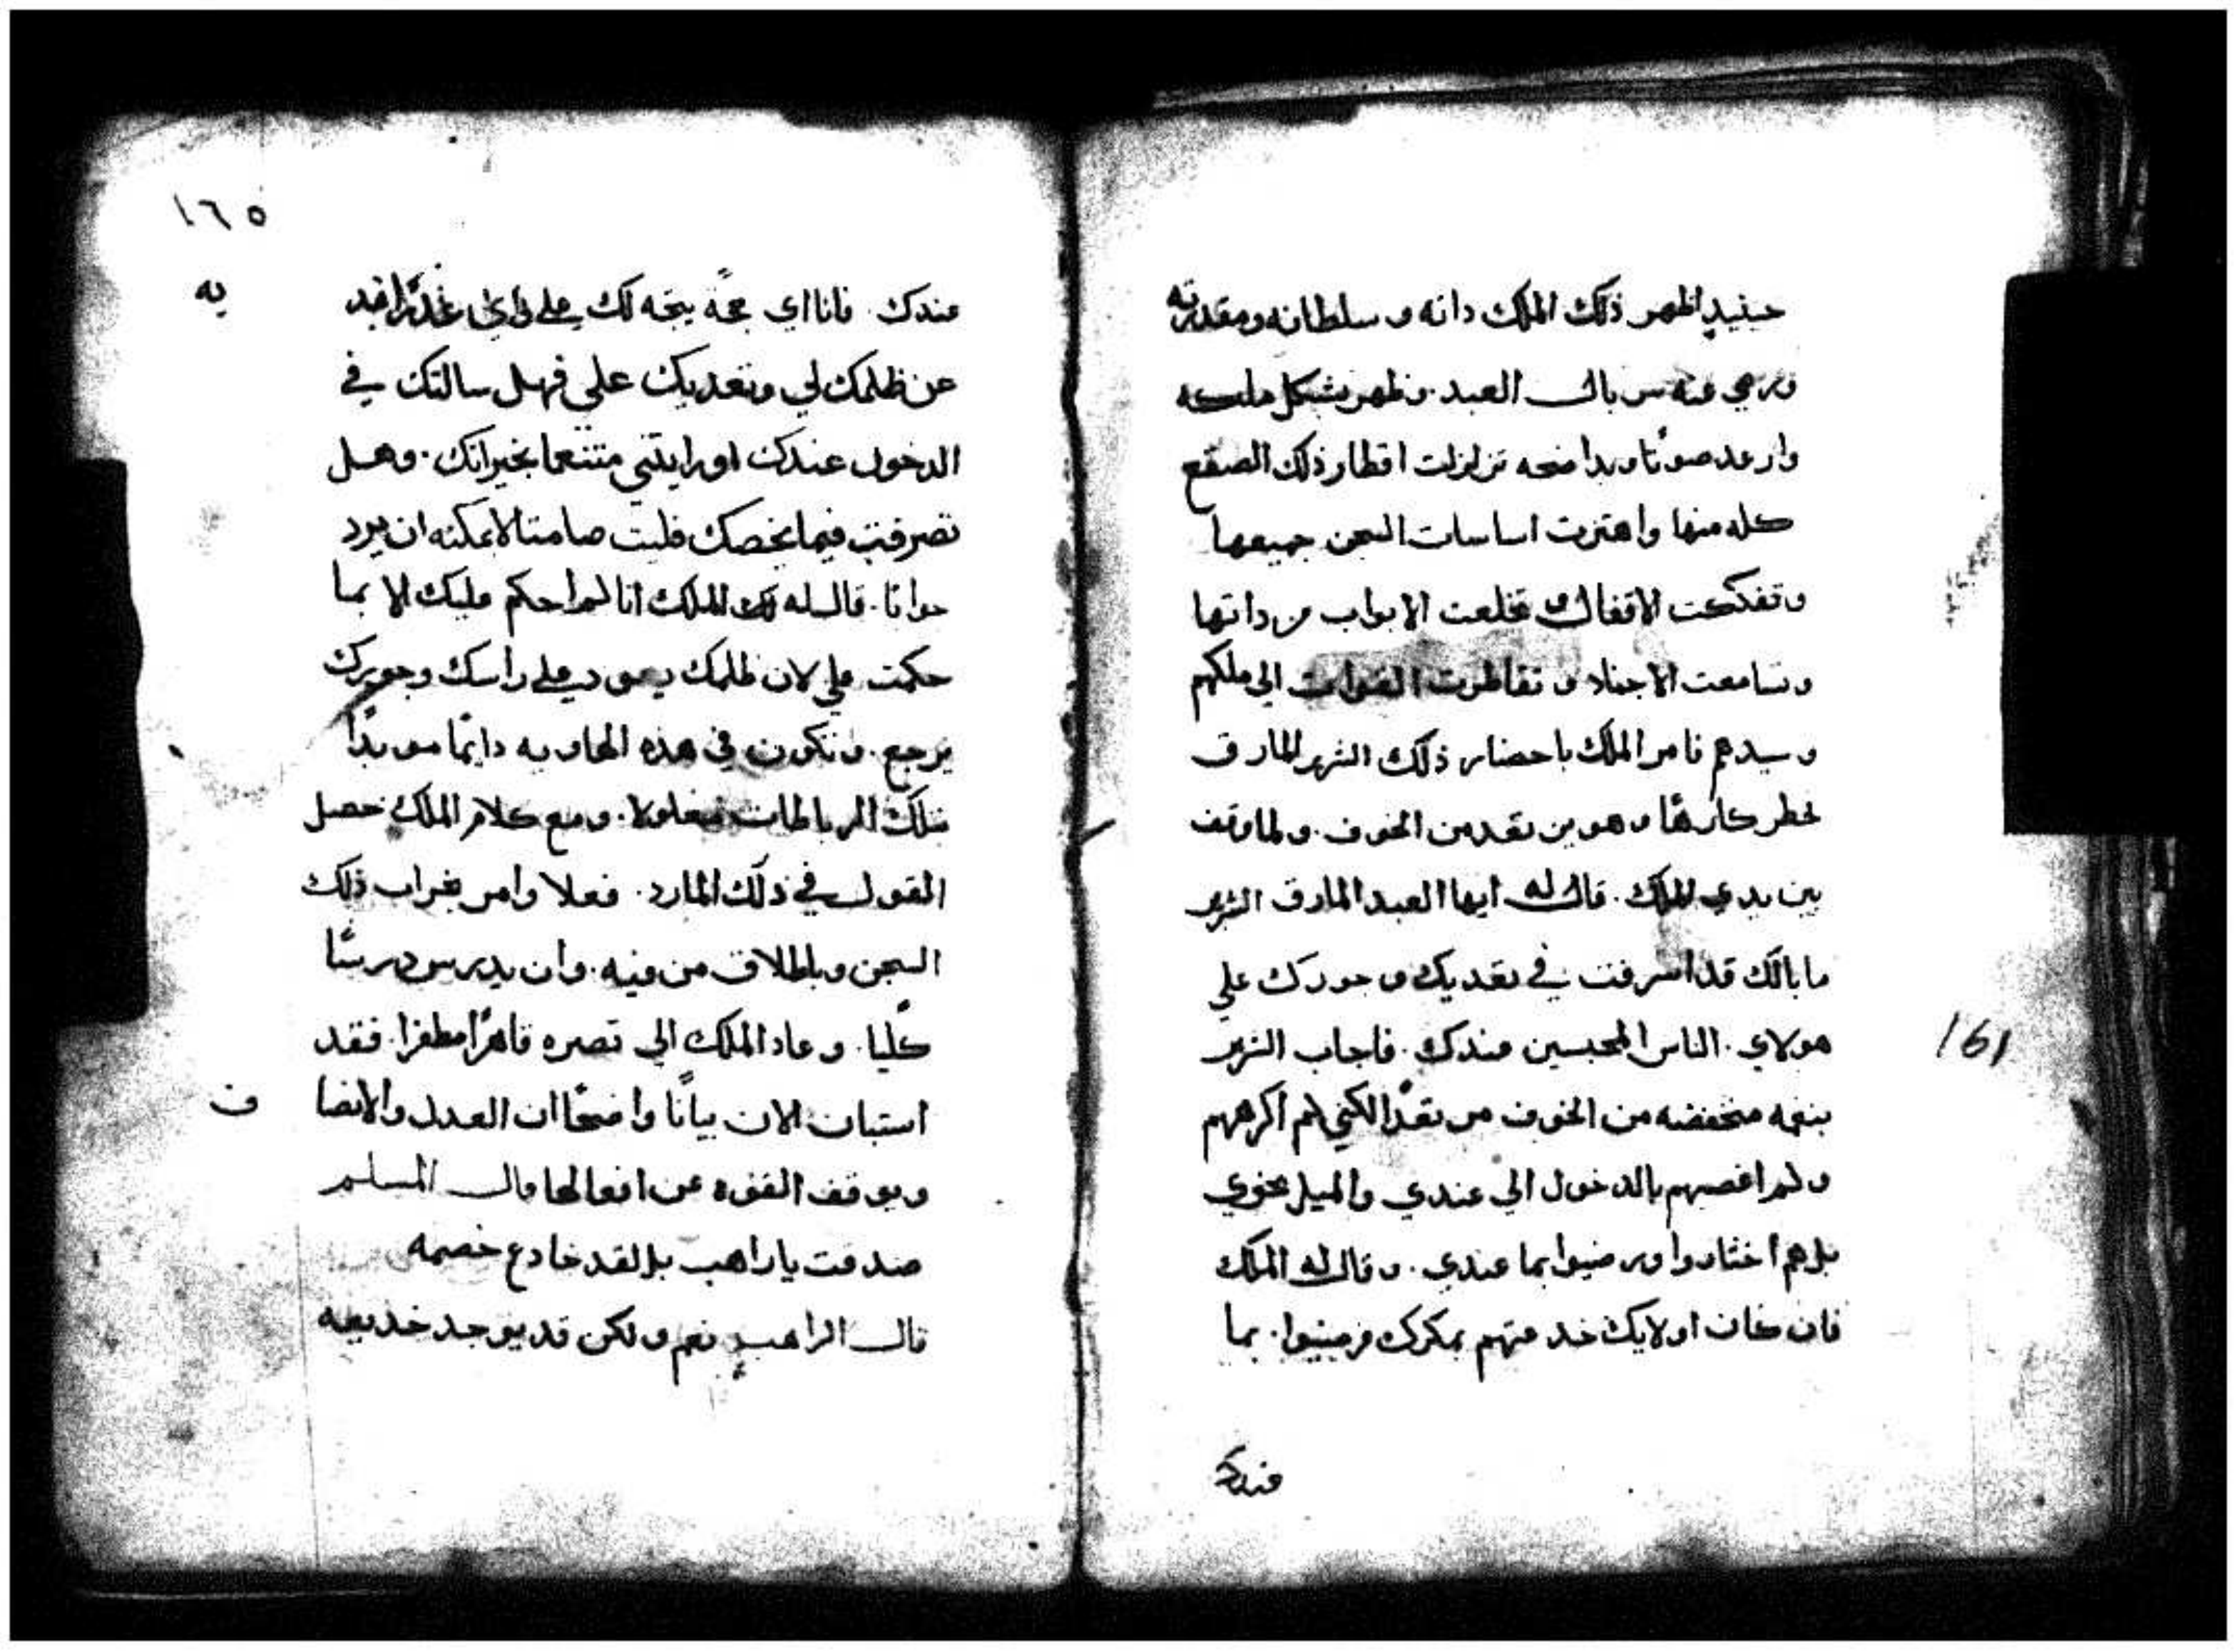 حينيدٍ اظهر ذلك الملك داته وسلطانه ومقدرته
ورمي عنه سربال العبد. وظهر بشكل ملكه
وارعد صوتا وبدا ضجه تزلزلت اقطار ذلك الصقع
كله منها واهتزت اساسات السجن جميعها
وتفككت الاقفال وتخلعت الابواب من داتها
وتسامعت الاجناد وتقاطرت القوات الي ملكهم
وسيدهم فامر الملك باحضار ذلك الشرير المارق
فحطر كارهًا وهو يرتعد من الخوف. ولما وقف
بين يدي الملك. قال له ايها العبد المارق الشرير
ما بالك قد اسرفت في تعديك وجورك علي
هولاي. الناس المحبسين عندك. فاجاب الشرير
بنغمه منخفضه من الخوف مرتعدًا لكني لم اكرههم
ولم اغصبهم بالدخول الي عندي والميل نحوي
بل هم اختاروا ورضيوا بما عندي. وقال له الملك
فان كان اولايك خدعتهم بمكرك فرضيوا. بما
عندك
١٦٥
161
عندك. فانا اي حجًه يتجه لك علي واي عذرًا فيد
يه
عن ظلمك لي وتعديك علي فهل سالتك في
الدخول عندك اورايتني متنعما بخيراتك. وهل
تصرفت فيما يخصك فلبت صامتا لا يمكنه ان يرد
جوابًا. قال له ذلك الملك انا لم احكم عليك الا بما
حكمت علي لان ظلمك يعود علي راسك وجورك
يرجع. وتكون في هذه الهاويه دايمًا موبدًا
بتلك الرباطات مغلولا. ومع كلام الملك حصل
القول في ذلك المارد. فعلا وامر بخراب ذلك
السجن وباطلاق من فيه. وان يدرس درسًا
كليًا. وعاد الملك الي قصره قاهرًا مظفرا. فقد
استبان الان بيانًا واضحًا ان العدل والانصا
ف
ويوقف القوه عن افعالها قال المسلم
صدقت يا راهب بل لقد خادع خصمه
قال الراهب نعم ولكن قد يوجد خديعه